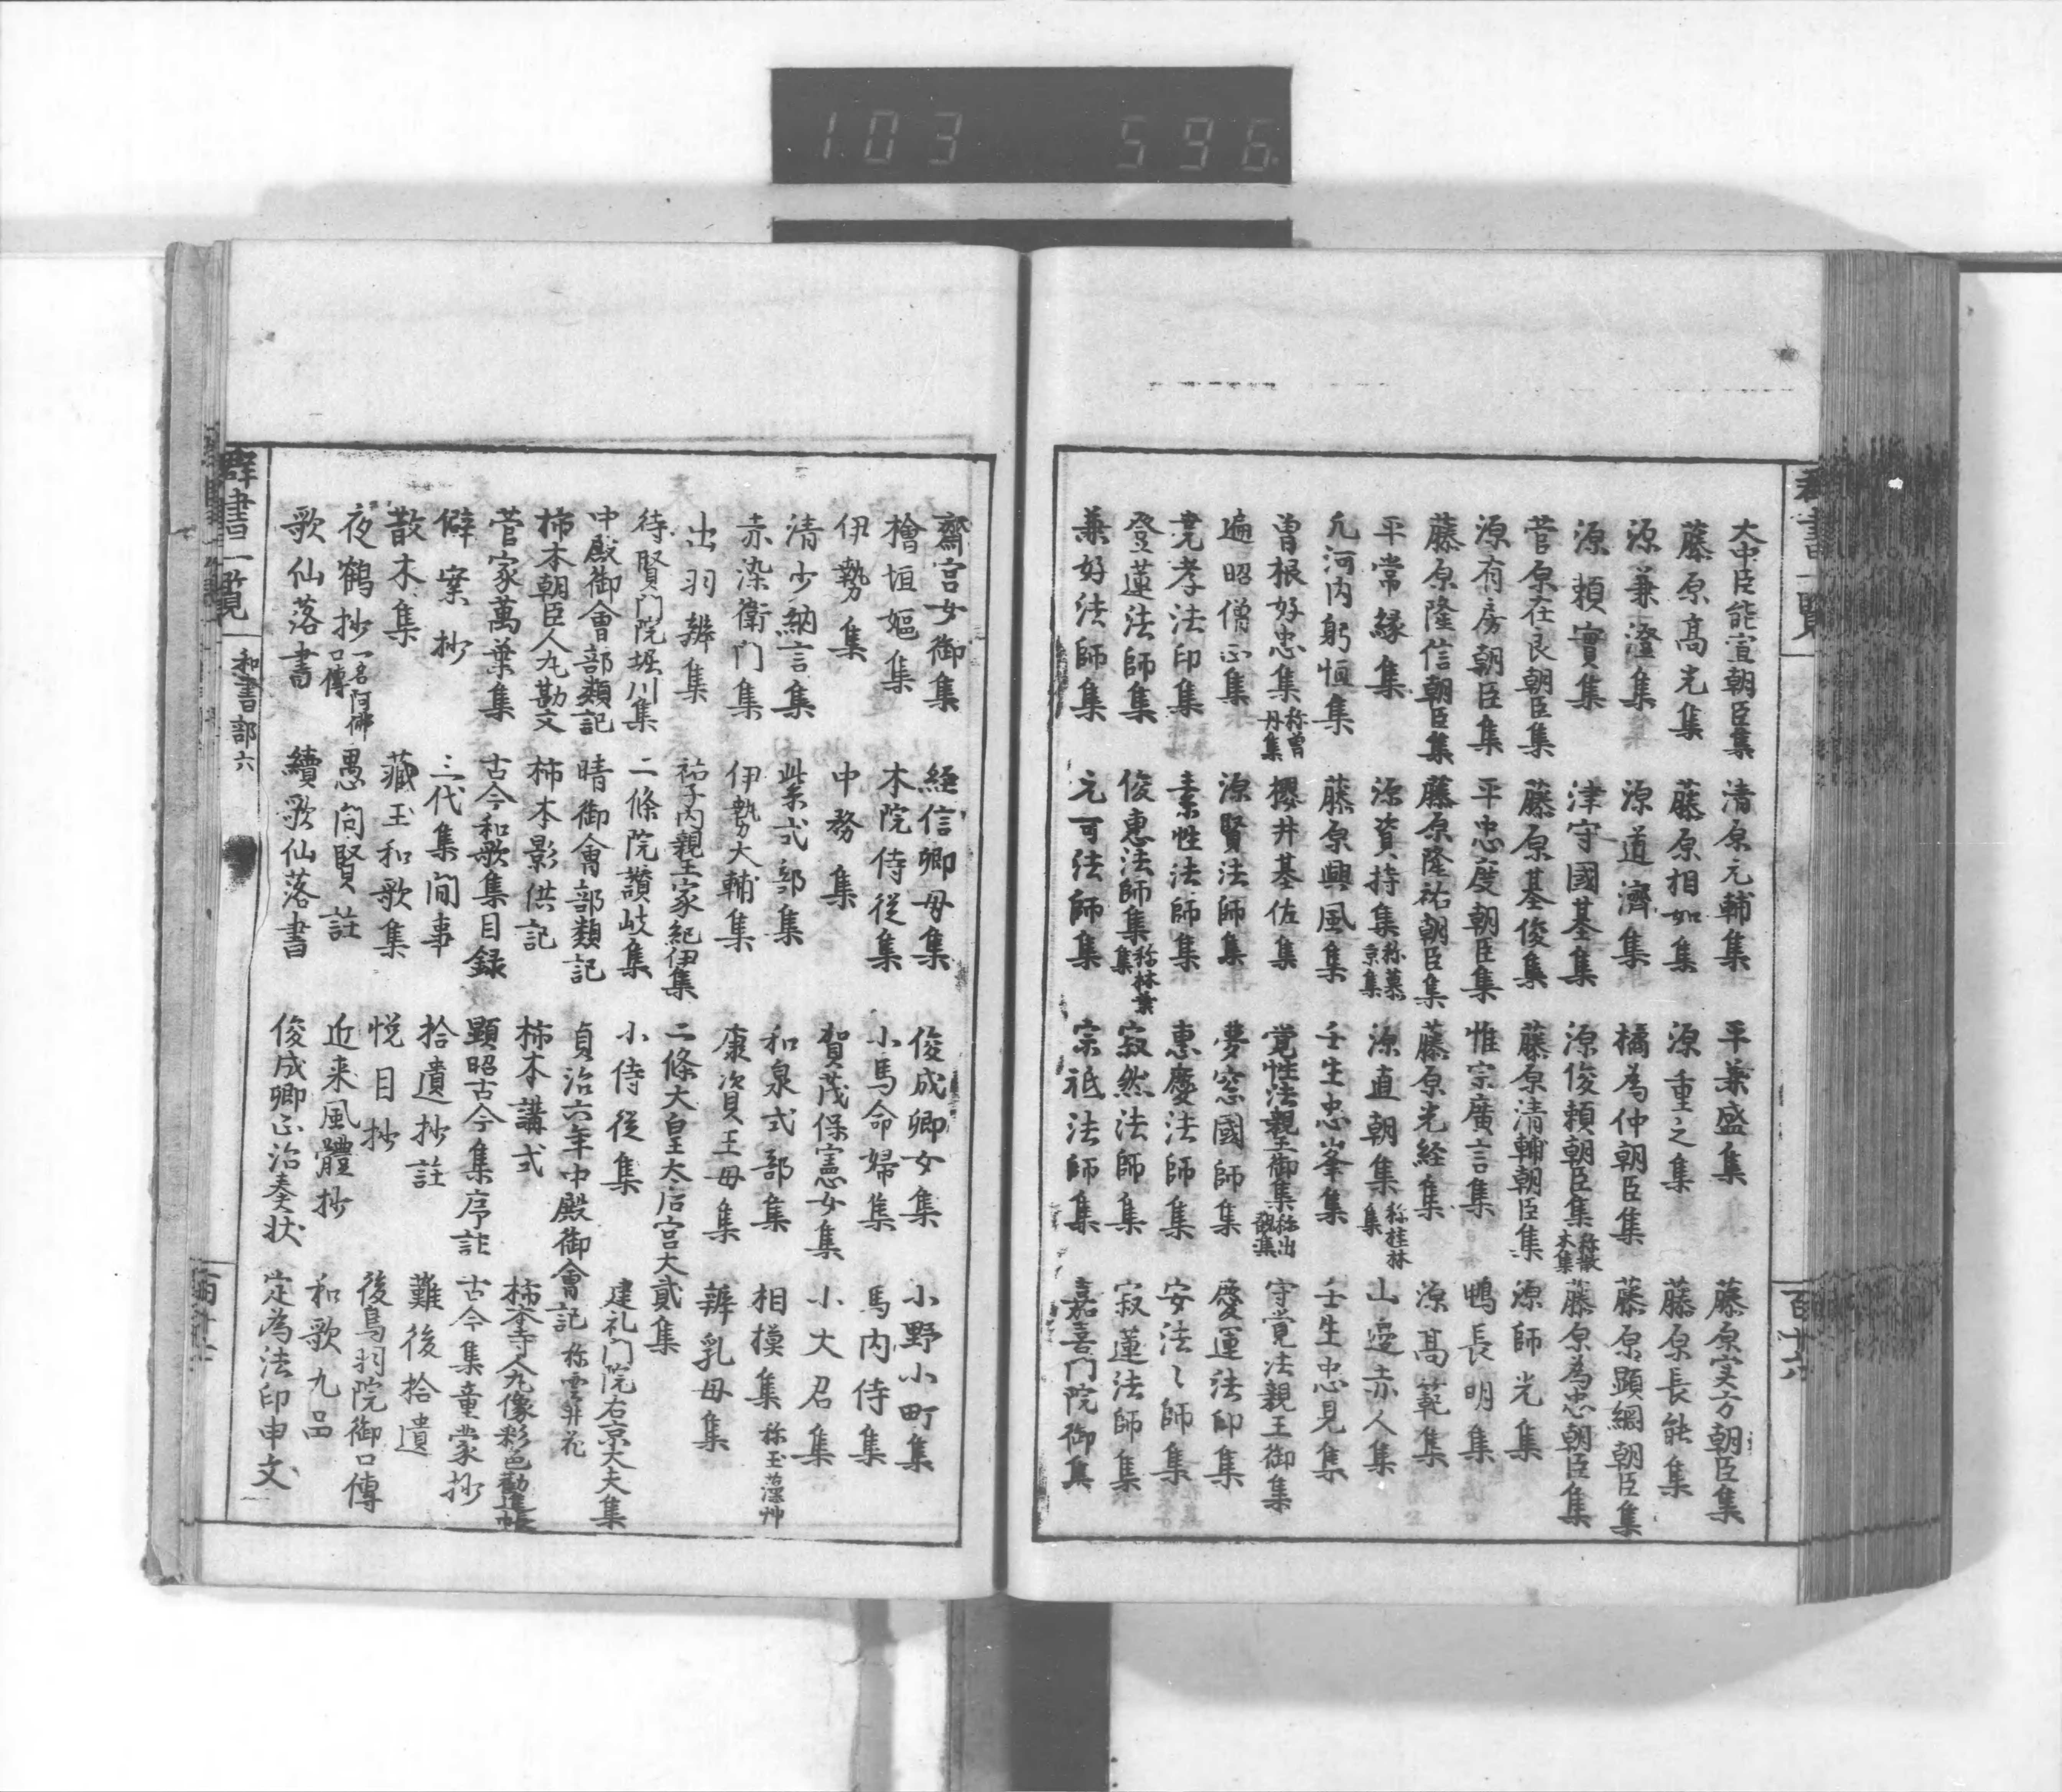 103 596
群書一覧
百十六
大中臣能宣朝臣集 清原元輔集 平兼盛集 藤原実方朝臣集
藤原高光集 藤原相如集 源重之集 藤原長能集
源兼澄集 源道濟集 橘為仲朝臣集 藤原顕綱朝臣集
源頼實集 津守國基集 源俊頼朝臣集称散木集 藤原為忠朝臣集
菅原在良朝臣集 藤原基俊集 藤原清輔朝臣集 源師光集
源有房朝臣集 平忠度朝臣集 惟宗廣言集 鴨長明集
藤原隆信朝臣集 藤原隆祐朝臣集 藤原光経集 源高範集
平常縁集 源資持集称慕京集 源直朝集称桂林集 山邊赤人集
凢河内躬恒集 藤原興風集 壬生忠峯集 壬生忠見集
曽根好忠集称曽丹集 櫻井基佐集 覚性法親王御集称出観集 守覚法親王御集
遍昭僧正集 源賢法師集 夢窓國師集 慶運法印集
尭孝法印集 素性法師集 惠慶法師集 安法〻師集
登蓮法師集 俊惠法師集称林葉集 寂然法師集 寂蓮法師集
兼好法師集 元可法師集 宗祇法師集 嘉喜門院御集
齋宮女御集 経信卿母集 俊成卿女集 小野小町集
檜垣嫗集 本院侍従集 小馬命婦集 馬内侍集
伊勢集 中務集 賀茂保憲女集 小大君集
清少納言集 紫式部集 和泉式部集 相摸集称玉藻艸
赤染衛門集 伊勢大輔集 康資王母集 辨乳母集
出羽辨集 祐子内親王家紀伊集 二條大皇太后宮大貳集
待賢門院堀川集 二條院讃岐集 小侍従集 建礼門院右京大夫集
中殿御會部類記 晴御會部類記 貞治六年中殿御會記称雲井花
柿本朝臣人丸勘文 柿本影供記 柿本講式 柿本寺人丸像彩色勸進帳
菅家萬葉集 古今和歌集目録 顕昭古今集序註 古今集童蒙抄
僻案抄 三代集間事 拾遺抄註 難後拾遺
散木集 藏玉和歌集 悦目抄 後鳥羽院御口傳
夜鶴抄一名阿佛口傳 愚問賢註 近来風體抄 和歌九品
歌仙落書 續歌仙落書 俊成卿正治奏状 定為法印申文
群書一覧
和書部六